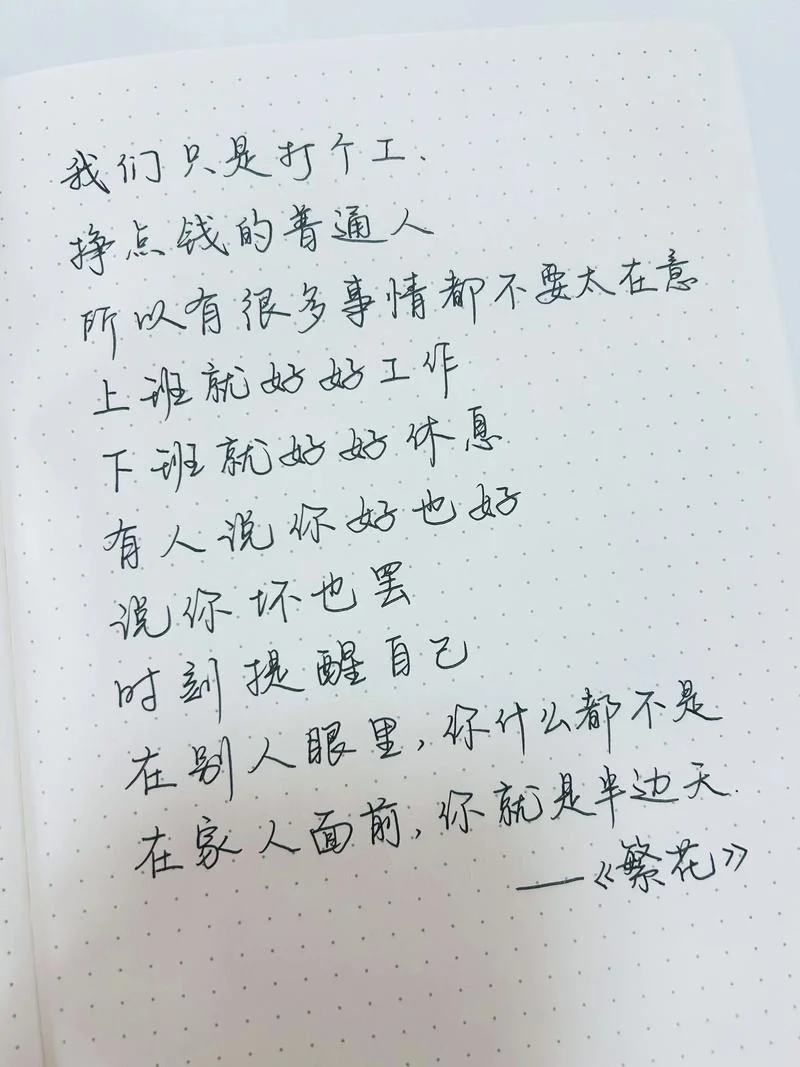 我们只是打个工.
挣点钱的普通人
所以有很多事情都不要太在意
上班就好好工作
下班就好好休息
有人说你好也好
说你坏也罢
时刻提醒自己
在别人眼里,你什么都不是
在家人面前,你就是半边天.
——《繁花》